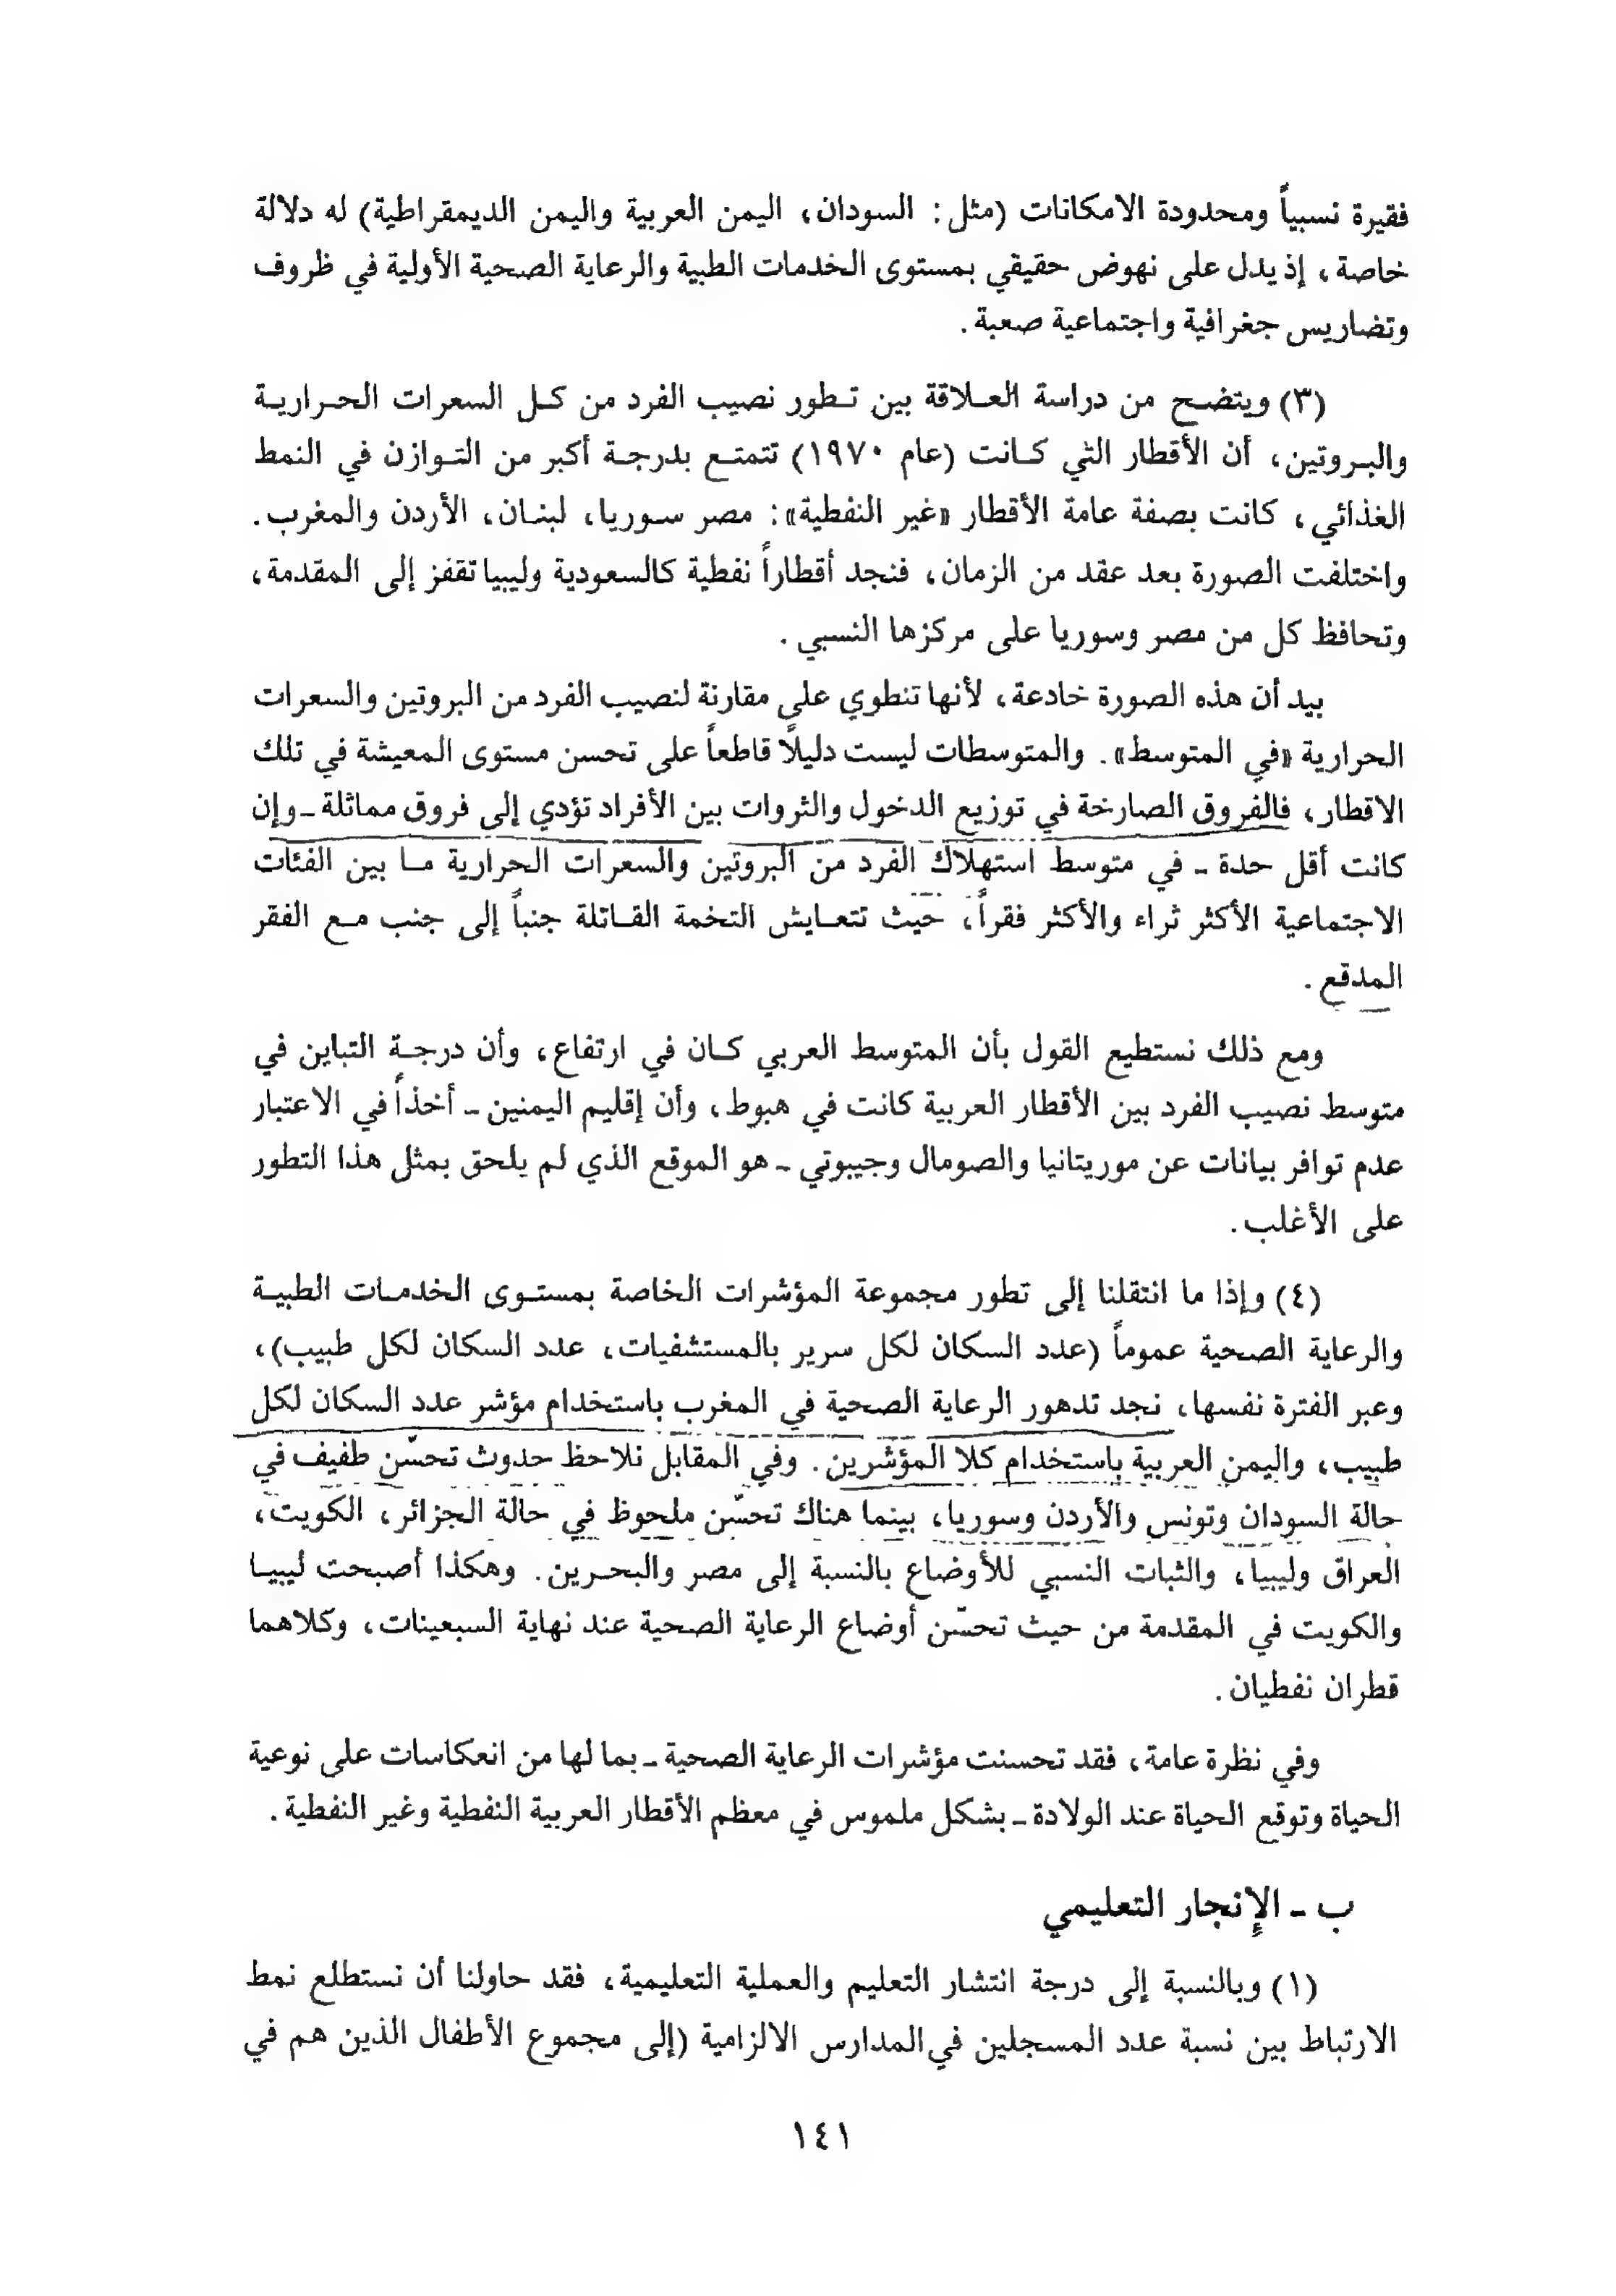 فقيرة نسبياً ومحدودة الامكانات (مثل: السودان، اليمن العربية واليمن الديمقراطية) له دلالة
خاصة، إذ يدل على نهوض حقيقي بمستوى الخدمات الطبية والرعاية الصحية الأولية في ظروف
وتضاريس جغرافية واجتماعية صعبة.
(٣) ويتضح من دراسة العلاقة بين تطور نصيب الفرد من كل السعرات الحرارية
والبروتين، أن الأقطار التي كانت (عام ١٩٧٠) تتمتع بدرجة أكبر من التوازن في النمط
الغذائي، كانت بصفة عامة الأقطار «غير النفطية»: مصر سوريا، لبنان، الأردن والمغرب.
واختلفت الصورة بعد عقد من الزمان، فنجد أقطاراً نفطية كالسعودية وليبيا تقفز إلى المقدمة،
وتحافظ كل من مصر وسوريا على مركزها النسبي.
بيد أن هذه الصورة خادعة، لأنها تنطوي على مقارنة لنصيب الفرد من البروتين والسعرات
الحرارية «في المتوسط». والمتوسطات ليست دليلاً قاطعاً على تحسن مستوى المعيشة في تلك
الاقطار، فالفروق الصارخة في توزيع الدخول والثروات بين الأفراد تؤدي إلى فروق مماثلة ـ وإن
كانت أقل حدة ـ في متوسط استهلاك الفرد من البروتين والسعرات الحرارية ما بين الفئات
الاجتماعية الأكثر ثراء والأكثر فقراً، حيث تتعايش التخمة القاتلة جنباً إلى جنب مع الفقر
المدقع.
ومع ذلك نستطيع القول بأن المتوسط العربي كان في ارتفاع، وأن درجة التباين في
متوسط نصيب الفرد بين الأقطار العربية كانت في هبوط، وأن إقليم اليمنين ـ أخذاً في الاعتبار
عدم توافر بيانات عن موريتانيا والصومال وجيبوتي ـ هو الموقع الذي لم يلحق بمثل هذا التطور
على الأغلب.
(٤) وإذا ما انتقلنا إلى تطور مجموعة المؤشرات الخاصة بمستوى الخدمات الطبية
والرعاية الصحية عموماً (عدد السكان لكل سرير بالمستشفيات، عدد السكان لكل طبيب)،
وعبر الفترة نفسها، نجد تدهور الرعاية الصحية في المغرب باستخدام مؤشر عدد السكان لكل
طبيب، واليمن العربية باستخدام كلا المؤشرين. وفي المقابل نلاحظ حدوث تحسّن طفيف في
حالة السودان وتونس والأردن وسوريا، بينما هناك تحسّن ملحوظ في حالة الجزائر، الكويت،
العراق وليبيا، والثبات النسبي للأوضاع بالنسبة إلى مصر والبحرين. وهكذا أصبحت ليبيا
والكويت في المقدمة من حيث تحسّن أوضاع الرعاية الصحية عند نهاية السبعينات، وكلاهما
قطران نفطيان.
وفي نظرة عامة، فقد تحسنت مؤشرات الرعاية الصحية ـ بما لها من انعكاسات على نوعية
الحياة وتوقع الحياة عند الولادة ـ بشكل ملموس في معظم الأقطار العربية النفطية وغير النفطية.
ب ـ الإنجار التعليمي
(١) وبالنسبة إلى درجة انتشار التعليم والعملية التعليمية، فقد حاولنا أن نستطلع نمط
الارتباط بين نسبة عدد المسجلين في المدارس الالزامية (إلى مجموع الأطفال الذين هم في
١٤١